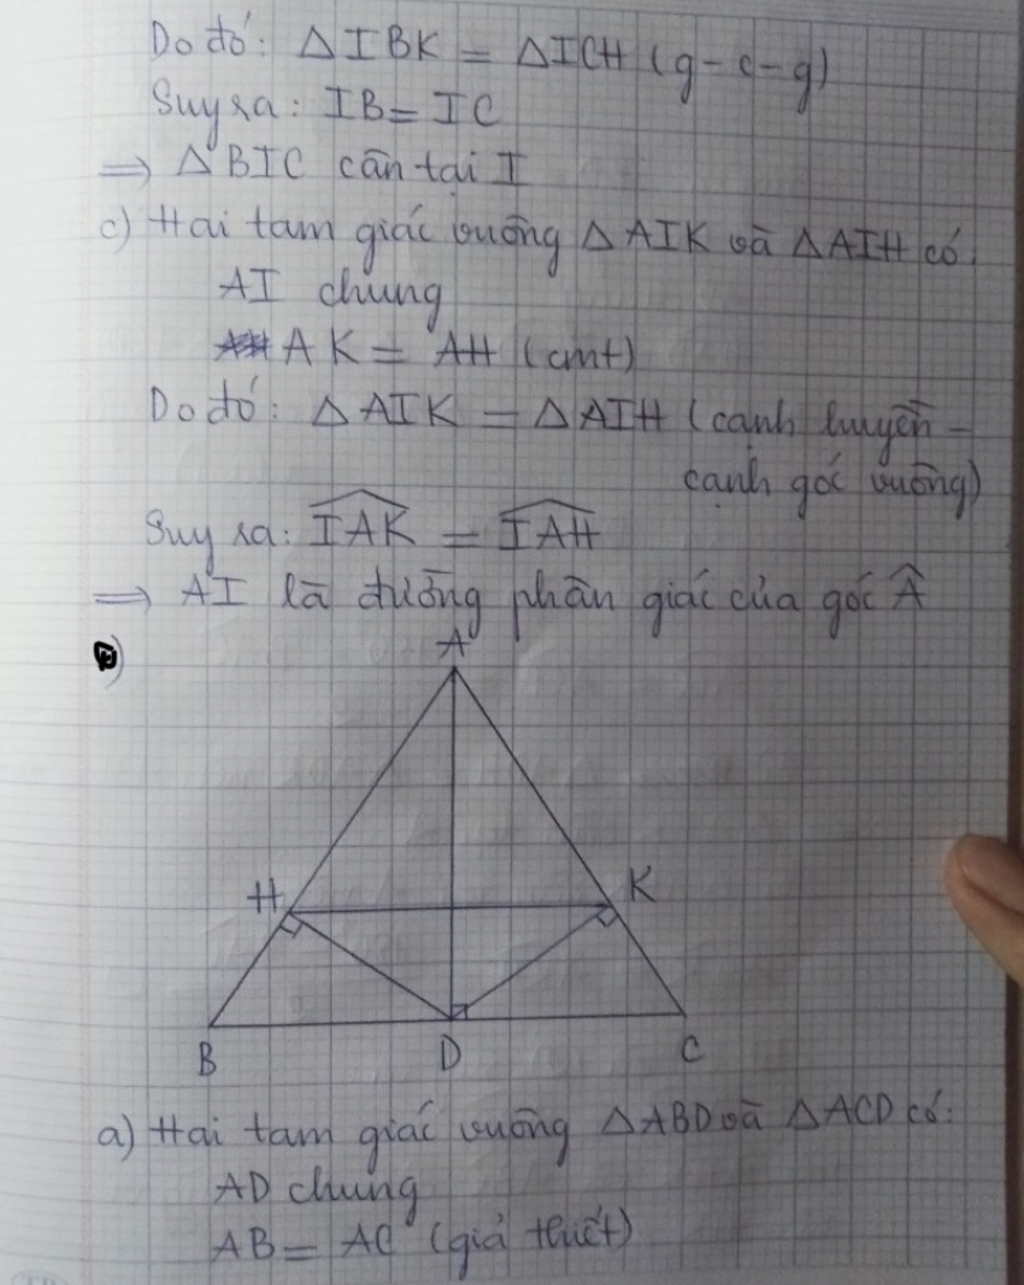 Do đó: △IBK = △ICH (g-c-g)
Suy ra: IB = IC
⇒ △BIC cân tại I
c) Hai tam giác vuông △AIK và △AIH có:
AI chung
AK = AH (cmt)
Do đó: △AIK = △AIH (cạnh huyền -
cạnh góc vuông)
Suy ra: \widehat{IAK} = \widehat{IAH}
⇒ AI là đường phân giác của góc Â
A
H K
B D C
a) Hai tam giác vuông △ABD và △ACD có:
AD chung
AB = AC (giả thiết)